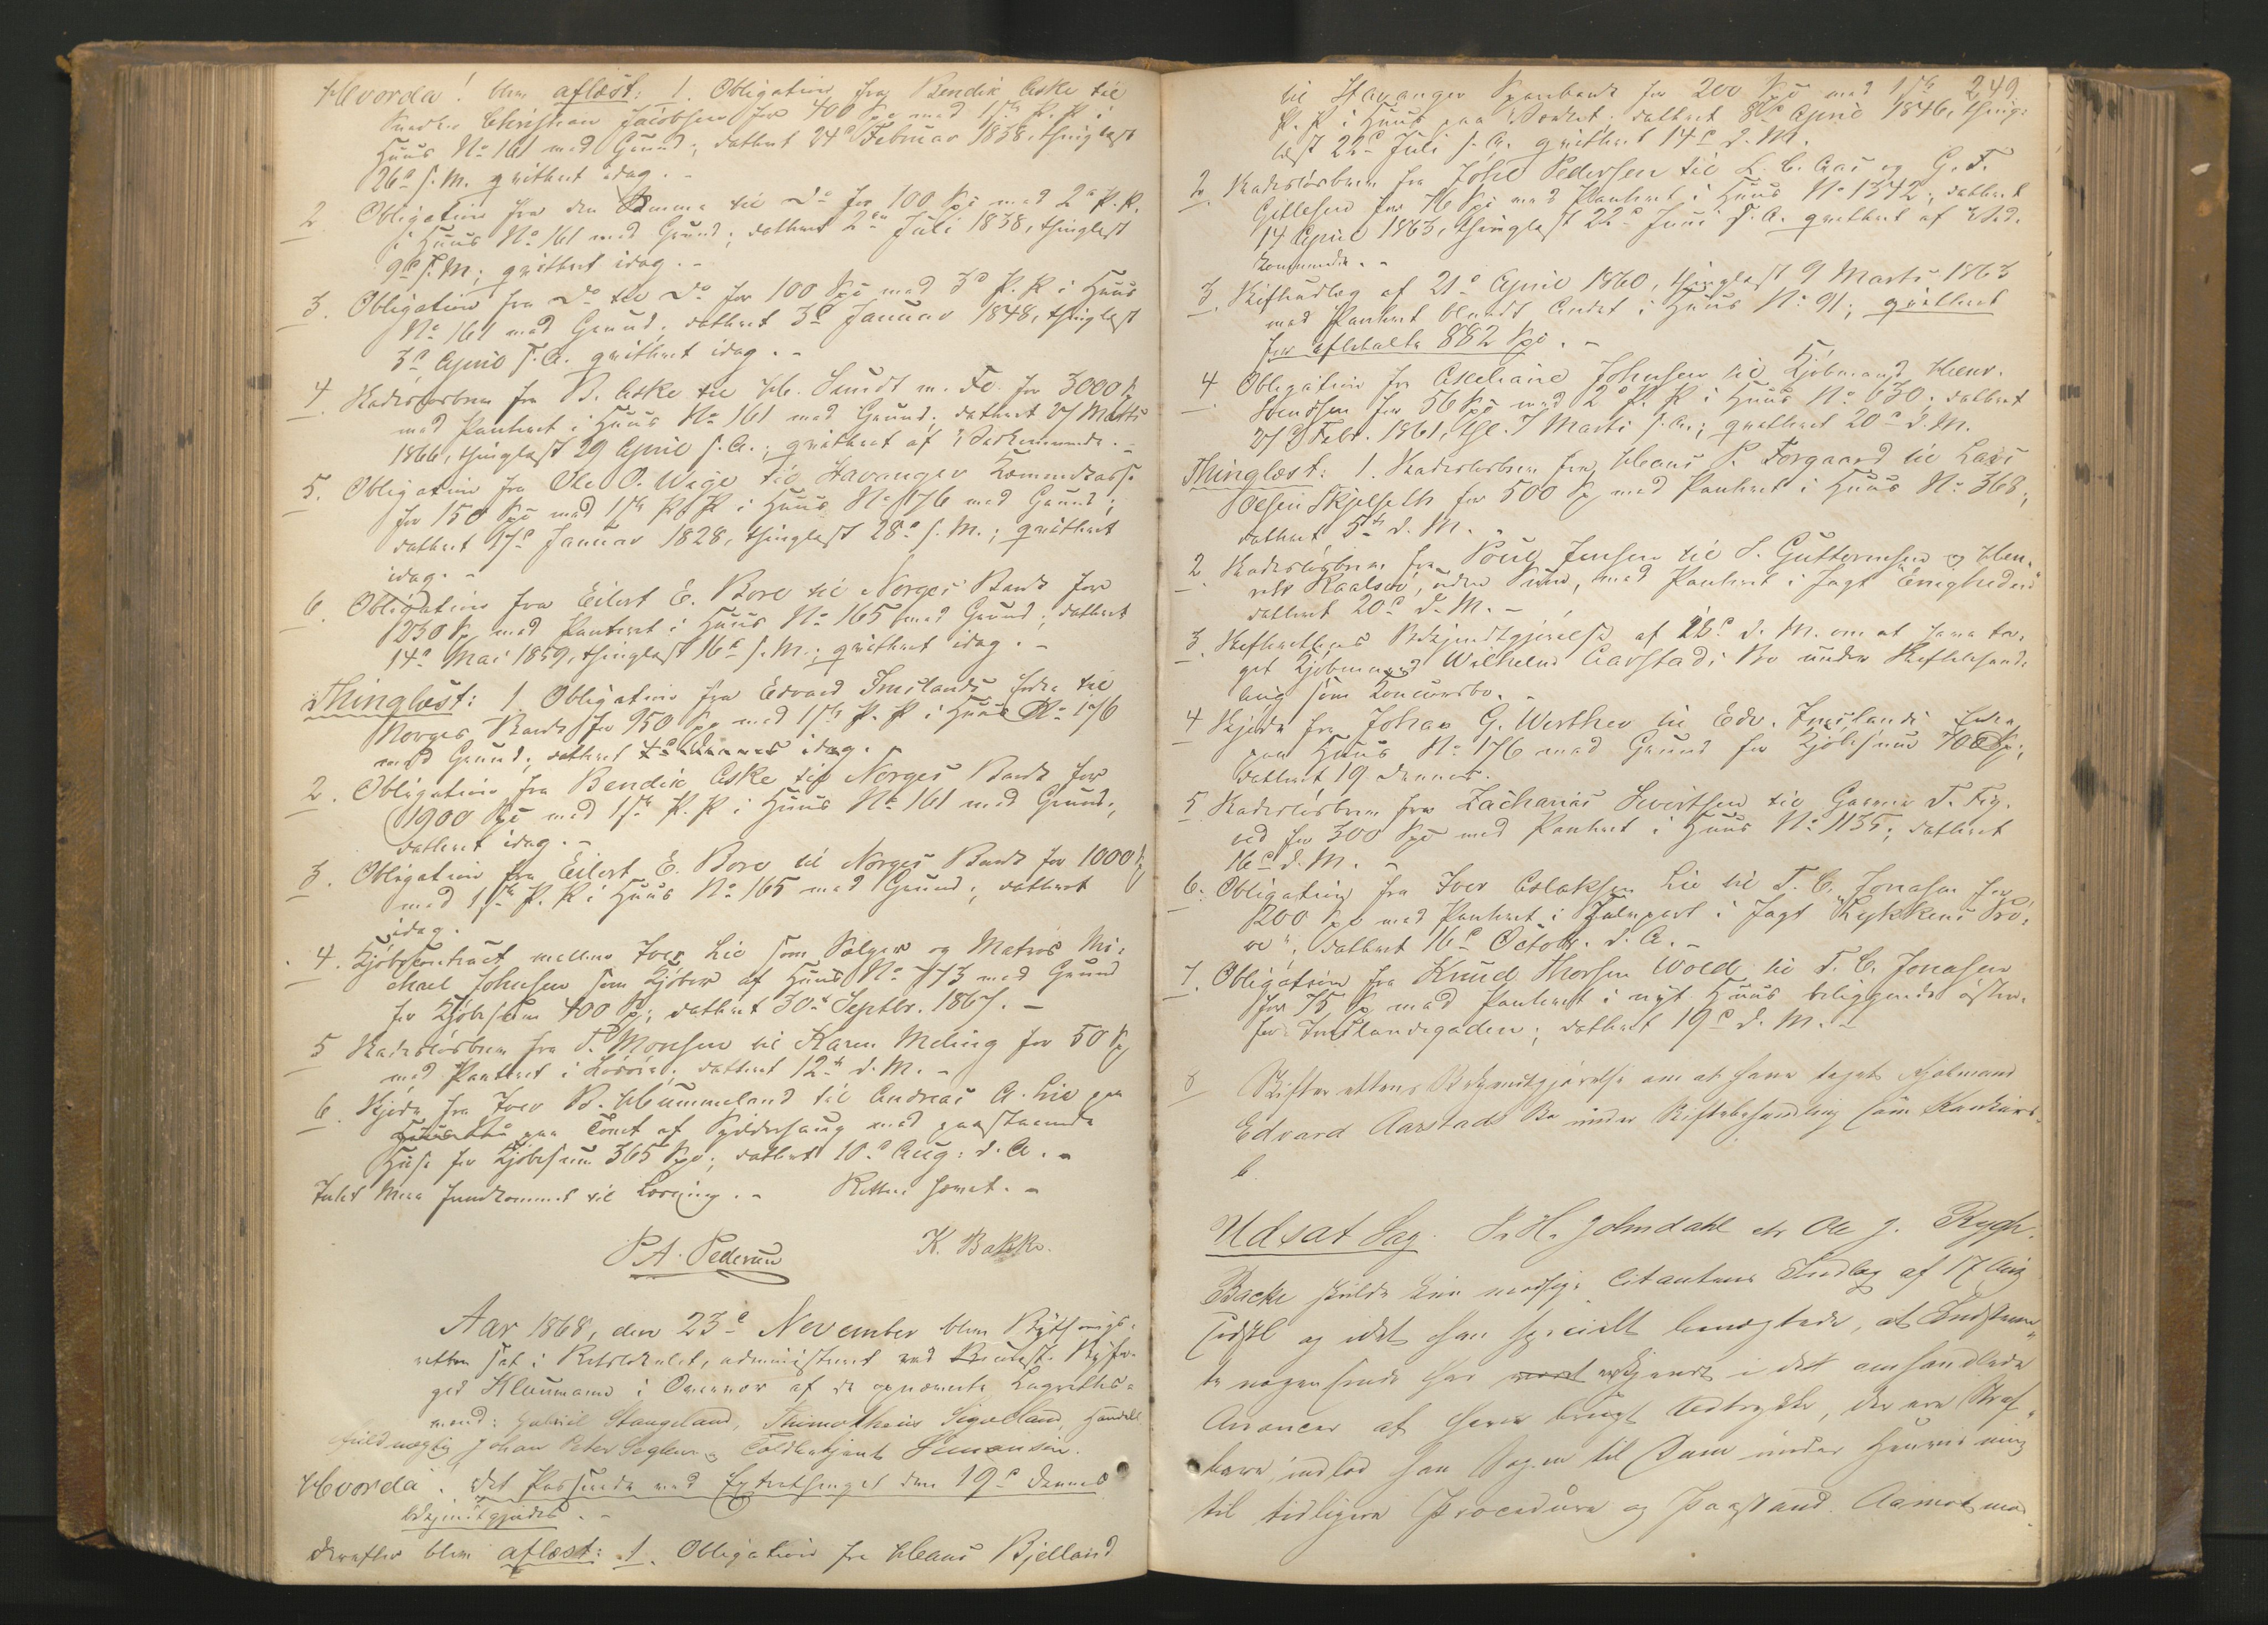 Hvorda! blev aflæst: 1. Obligation fra Bendix Aske til
Christian Jacobsen for 400 Spd. med 1ste P. R. i
Huus No 161 med Grund; dateret 24de Februar 1838, thinglæst
26de s. M. qvitteret idag. -
2. Obligation fra den Samme til Do for 100 Spd med 2den P. R.
i Huus No 161 med Grund; dateret 2den Juli 1838, thinglæst
9de s. M; qvitteret idag. -
3. Obligation fra Do til Do for 100 Spd med 3de P. R i Huus
No 161 med Grund, dateret 3de Januar 1848, thinglæst
3de April s. A. qvitteret idag. -
4. Skadesløsbrev fra B. Aske til H. Sundt m. Fl. for 3000
med Panteret i Huus No 161 med Grund; dateret 27 Marts
1866, thinglæst 29 April s. A.; qvitteret af Vedkommende. -
5. Obligation fra Ole O. Wige til Stavanger Kæmnerkasse
for 150 Spd med 1ste P. R i Huus No 176 med Grund;
dateret 17de Januar 1828, thinglæst 28de s. M.; qvitteret
idag. -
6. Obligation fra Eilert E. Bore til Norges Bank for
1250 Sp. med Panteret i Huus No 165 med Grund; dateret
14de Mai 1859, thinglæst 16de s. M.; qvitteret idag. -
Thinglæst: 1. Obligation fra Edvard Imslands Enke til
Norges Bank for 950 Spd med 1ste P. R i Huus No 176
med Grund; dateret idag. -
2. Obligation fra Bendix Aske til Norges Bank for
1900 Spd med 1ste P. R i Huus No 161 med Grund;
dateret idag. -
3. Obligation fra Eilert E. Bore til Norges Bank for 1000
med 1ste P. R i Huus No 165 med Grund; dateret
idag.
4. Kjøbecontract mellem Iver Lie som Sælger og Matros Mi-
chael Johnsen som Kjøber af Huus No 773 med Grund
for Kjøbesum 400 Sp; dateret 30te Septbr. 1867. -
5 Skadesløsbrev fra P. Monsen til Karen Meling for 50 Sp
med Panteret i Løsøre; dateret 12te d. M. -
6. Skjøde fra Iver B. Hummeland til Andreas A. Lie paa
paa Tomt af med paastaaende
Huse for Kjøbesum 365 Spd; dateret 10de Aug: d. A. -
Intet Mere fremkommet til Læsning. - Retten hævet. -
P A. Pedersen K. Bakke.
Aar 1868, den 23de November blev Bythings-
retten sat i Retslokalet, administreret ved Byfo-
ged Klaumann i Overvær af de opnævnte Laugrettes-
mænd: Gabriel Stangeland, Thimotheus Sigvelland, Handels
fuldmægtig Johan Peter Seglem og Toldbetjent Simonsen.
Hvorda: det Passerede ved Extrathinget den 19de dennes
bekjendtgjordes. -
derefter blev aflæst: 1. Obligation fra Hans Bjelland
249
til Stavanger Sparebank for 200 Spd med 1ste
P. R i Huus paa; dateret 8de April 1846, thing-
læst 22de Juli s. A. qvitteret 14de d. M.
2. Skadesløsbrev fra Johs Pedersen til L. C. Aas og G. F.
Gittesen for 76 Spd med Panteret i Huus No 1342; dateret
14 April 1863, thinglæst 22de Juni s. A. qvitteret af Ved-
kommende. -
3. Skifteudlæg af 21de April 1860, thinglæst 9 Marts 1863
med Panteret blandt Andet i Huus No 91; qvitteret
for afbetalte 882 Spd. -
4. Obligation fra Johnsen til Kjøbmand Henr.
Svendsen for 56 Spd med 2de P. R i Huus No 630; dateret
27de Febr. 1861, thgl. 7 Marts s. A.; qvitteret 20de d. M.
Thinglæst: 1. Skadesløsbrev fra Hans P. Torgaard til Lars
Oelsen Skjelseth for 500 Sp med Panteret i Huus No 368;
dateret 5te d. M. -
2. Skadesløsbrev fra Poul Jensen til S. Guttormsen og Hen-
rik Kaalsen, uden Sum, med Panteret i Jagt "Enigheden"
dateret 20de d. M. -
3. Skifterettens Bekjendtgjørelse af 18de d. M. om at have ta-
get Kjøbmand Wilhelm Aarstads Bo under Skiftebehand-
ling som Concursbo. -
4 Skjøde fra Johan G. Werther til Edv. Imslands Enke
paa Huus No 176 med Grund for Kjøbesum 700 Sp;
dateret 19 dennes.
5. Skadesløsbrev fra Zacharias Sivertsen til T. Fig-
ved for 300 Spd med Panteret i Huus No 1135; dateret
16de d. M. -
6. Obligation fra Iver Aslaksen Lie til T. C. Jonasen for
1200 Spd med Panteret i Halvpart i Jagt "Lykkens Prö-
ve"; dateret 16de Octobr. d. A. -
7. Obligation fra Knud Thorsen Wold til T. C. Jonasen
for 75 Sp med Panteret i nyt Huus beliggende østen-
for Imslandsgaden; dateret 19de d. M. -
8 Skifterettens Bekjendtgjørelse om at have taget Kjøbmand
Edvard Aarstads Bo under Skiftebehandling som Konkurs-
b.
Udsat Sag. P. H. Johndahl ctr Ole J. Rygh.
Backe skulde kun modsige Citantens Indlæg af 17 Aug
sidstl og idet han specielt benægtede, at Indstævn-
te nogensinde har erkjendt i det omhandlede
Avancer at have brugt Udtrykke, der ere Straf-
bare indlod han Sagen til Dom under Henvisning
til tidligere Procedure og Paastand. Aamot mod-